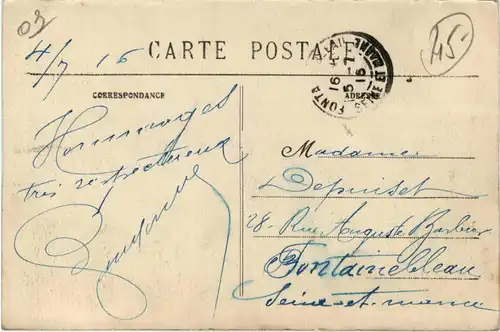 4/7 16
45
CARTE POSTALE
CORRESPONDANCE
ADRESSE
16 5-7
15
SEINE ET MARNE
Hommages
très respectueux
Madame
Depuiset
28. Rue Auguste Barbier
Fontainebleau
Seine-et-marne